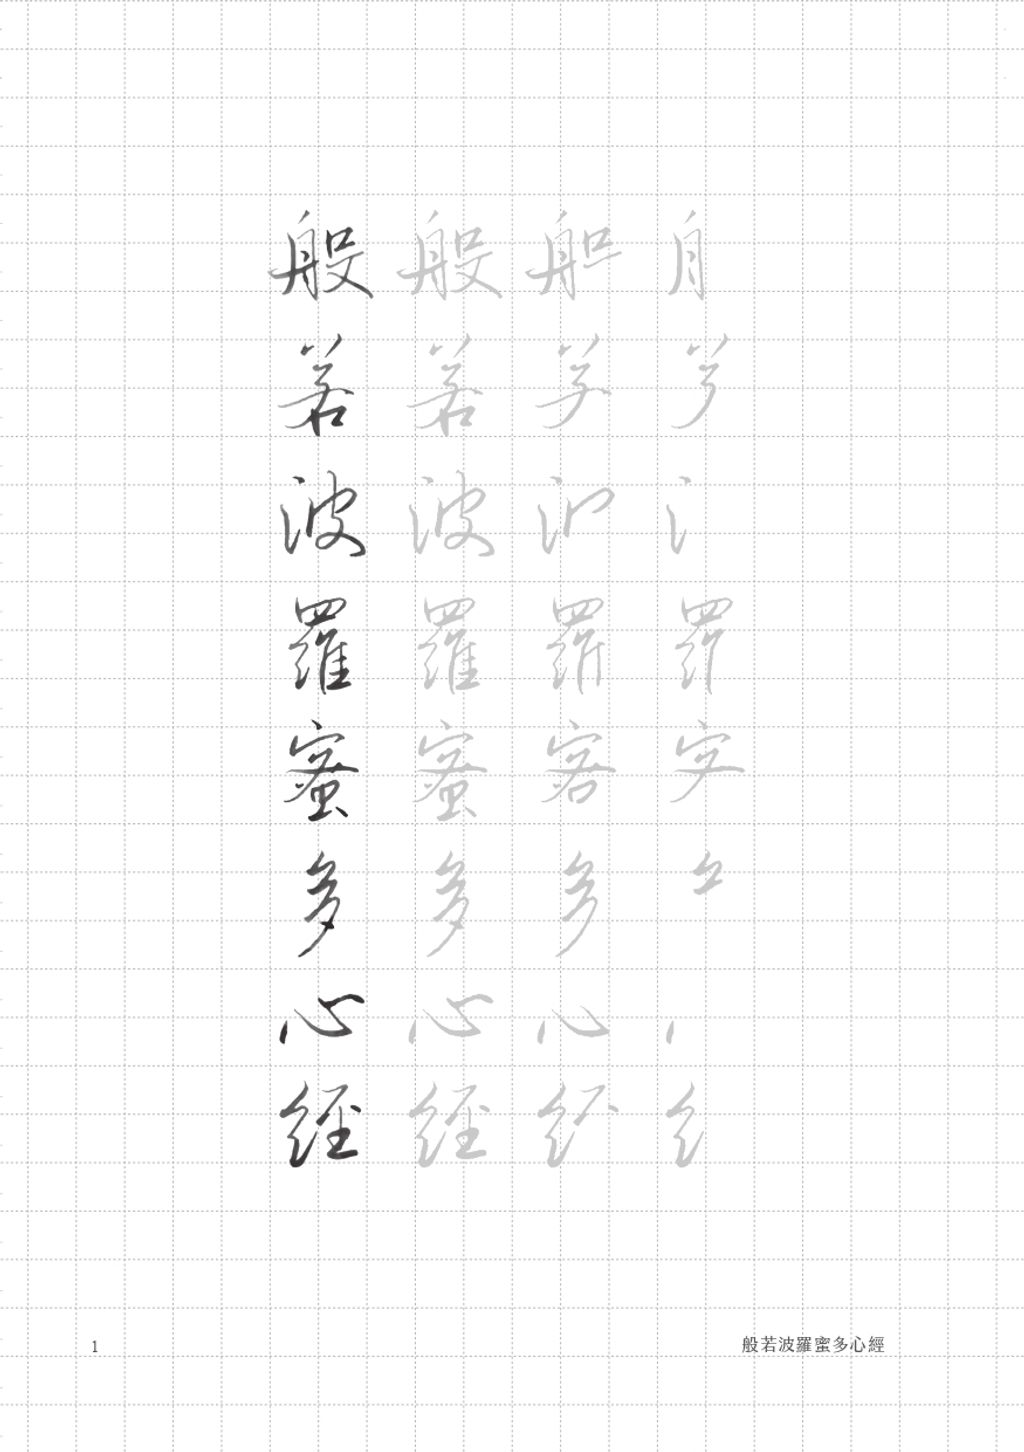 般若波羅蜜多心経
般若波羅蜜多心経
1
般若波羅蜜多心經